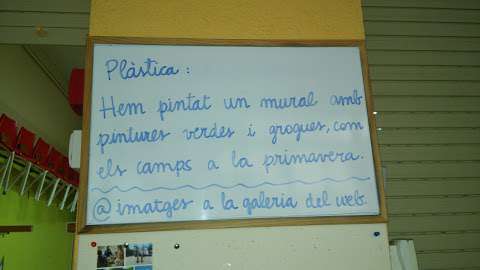 Plàstica:
Hem pintat un mural amb
pintures verdes i grogues, com
els camps a la primavera.
@ imatges a la galeria del web.